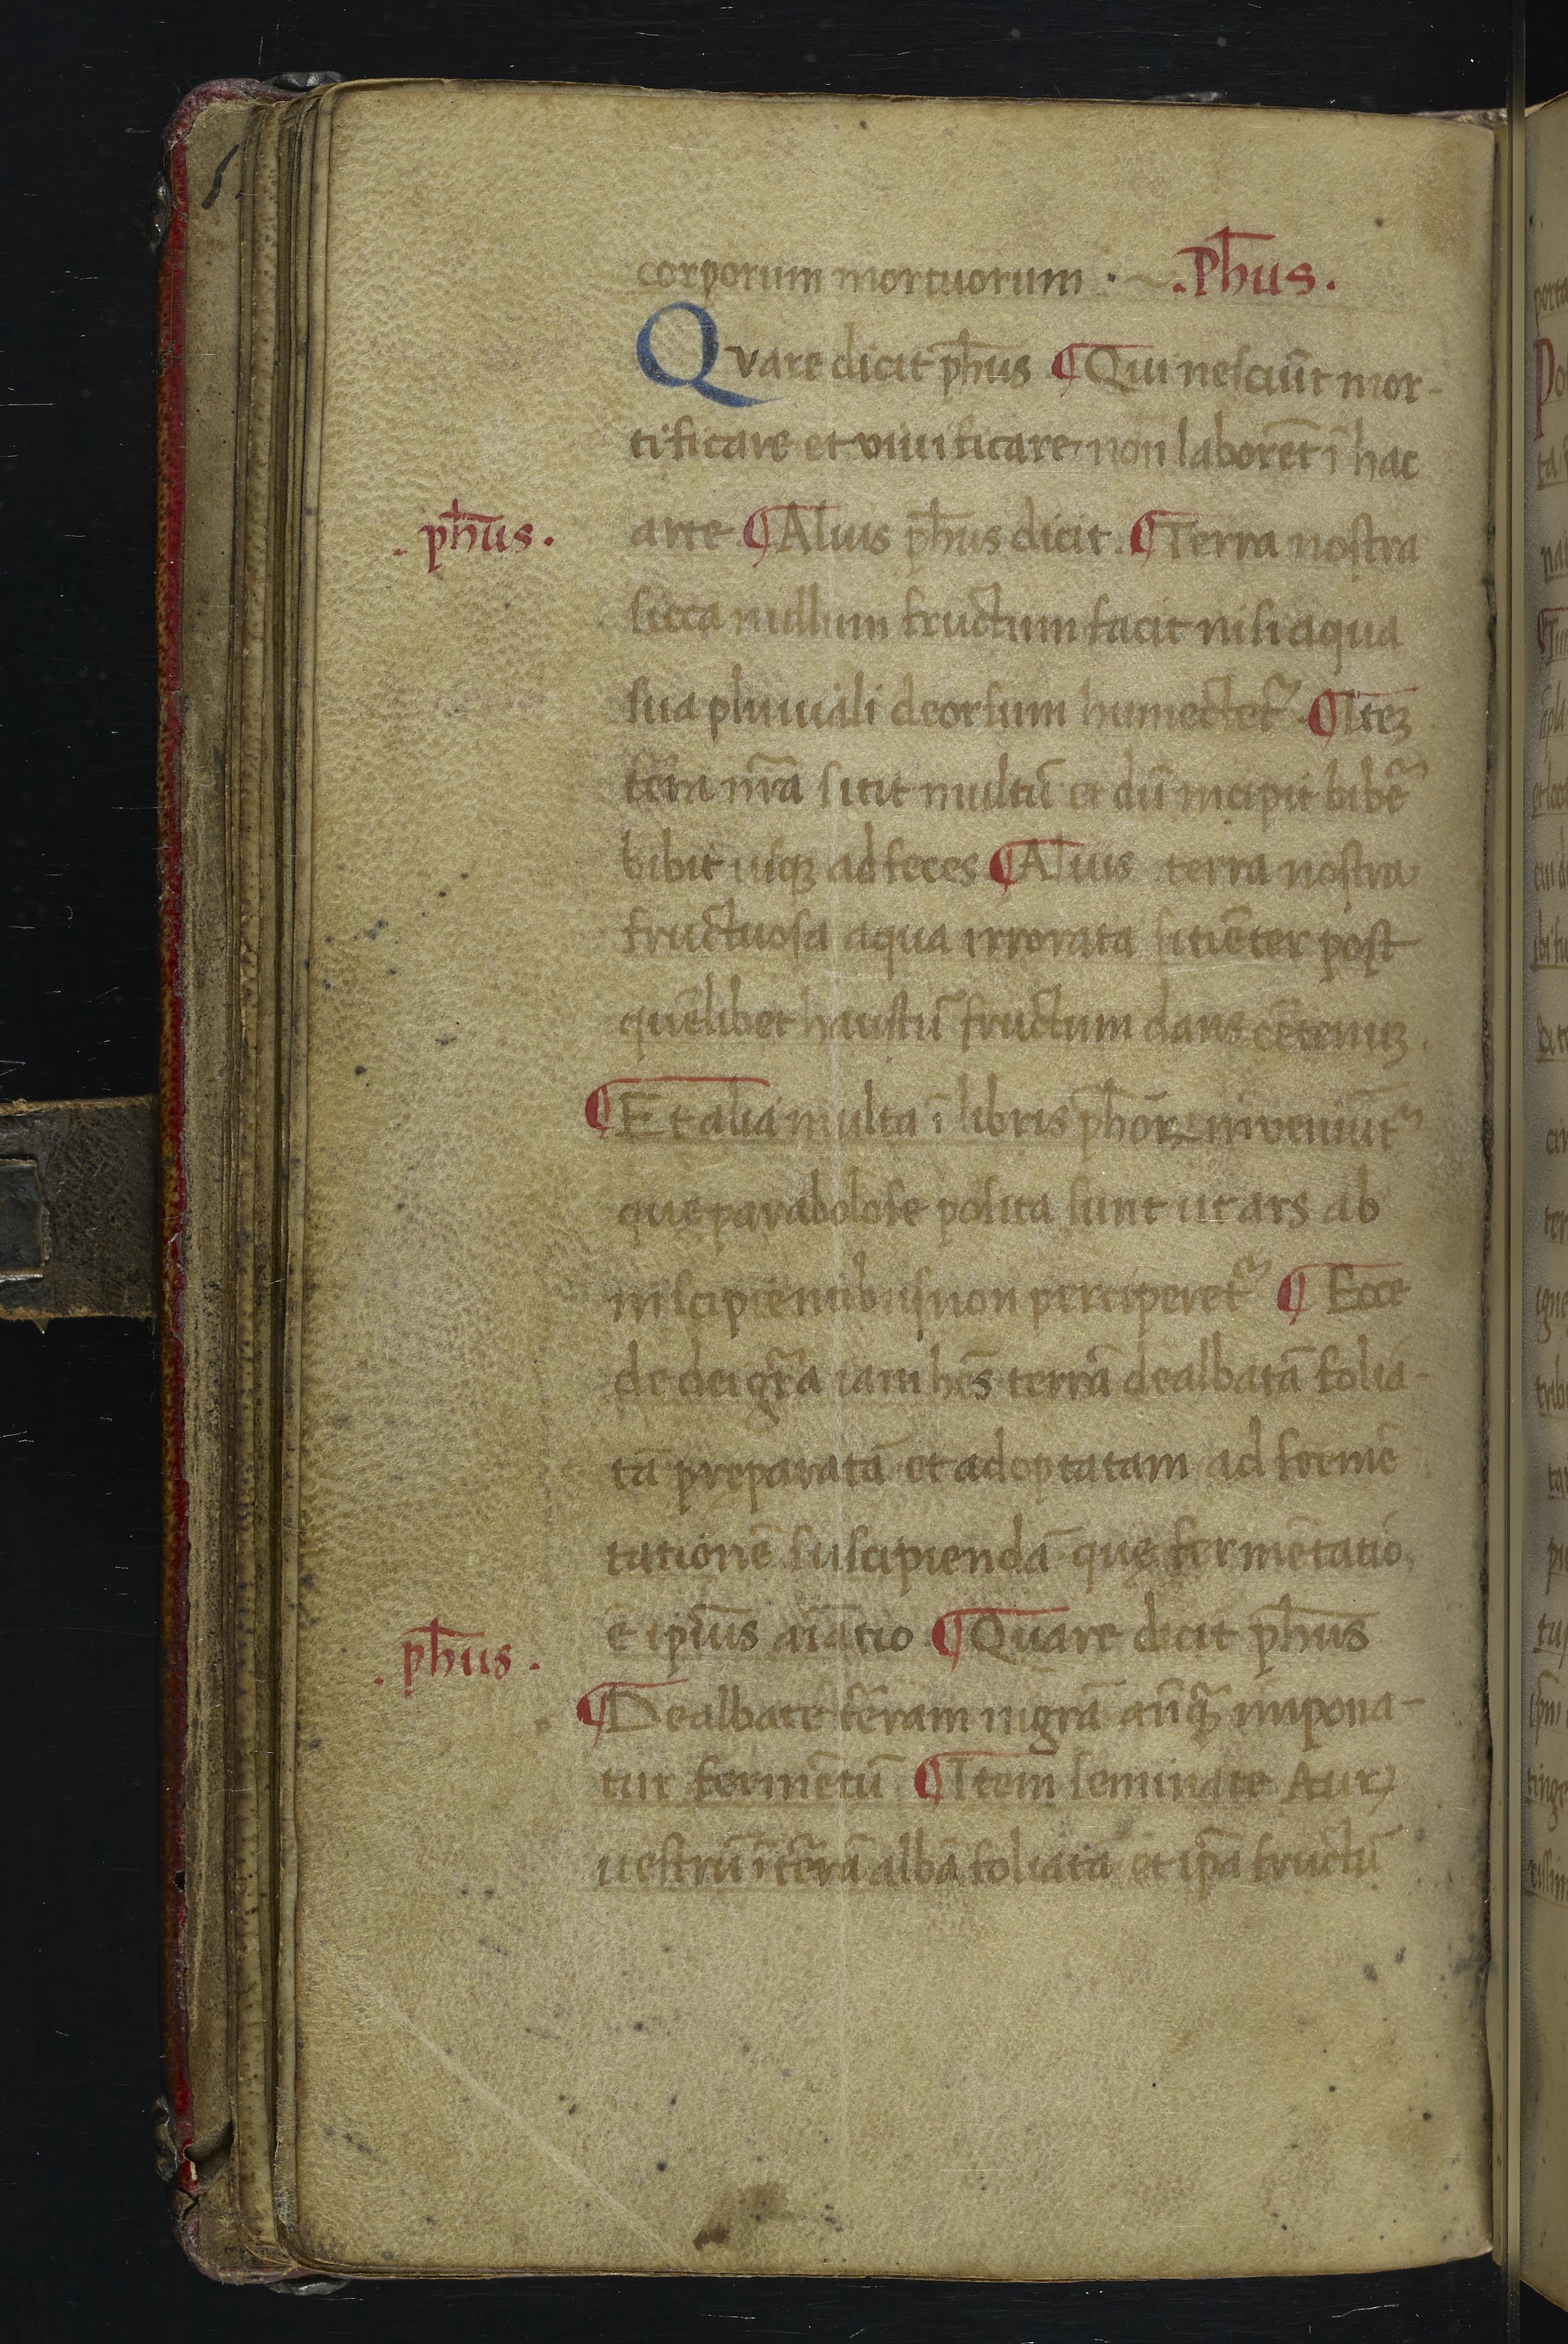 corporum mortuorum · ~ .Ph̄us.
Qvare dicit ph̄us ¶ Qui nesciūt mor-
tificare et viuificare non laborēt ī hac
. ph̄us . arte ¶ Alius ph̄us dicit. ¶ Terra nostra
sicca nullum fructum facit nisi aqua
sua pluuiali deorsum humectet̃ . ¶ Iteꝫ
tēra nr̄a sitit multū et dū incipit bibē
bibit usqꝫ ad feces ¶ Alius terra nostra
fructuosa aqua irrorata sitiēter post
quēlibet haustū fructum dans cētenuꝫ.
¶ Et alia multa ī libris ph̄oꝝ inveniūt̃
quę parabolose posita sunt ut ars ab
insipiẽtibus non perciperet̃ ¶ Ecce
de dei gr̄a iam hēs terrā dealbatā folia-
tā pręparatā et adoptatam ad fremē
tationē suscipiendā quę fermētatio
ē ipīus aīatio . ¶ Quare dicit ph̄us
. ph̄us .
¶ Dealbate tērram nigrā añqꝫ impona-
tur fermētū ¶ Item seminate Aurꝫ
uestrū ī tērrā albā foliatā et ip̄a fructū